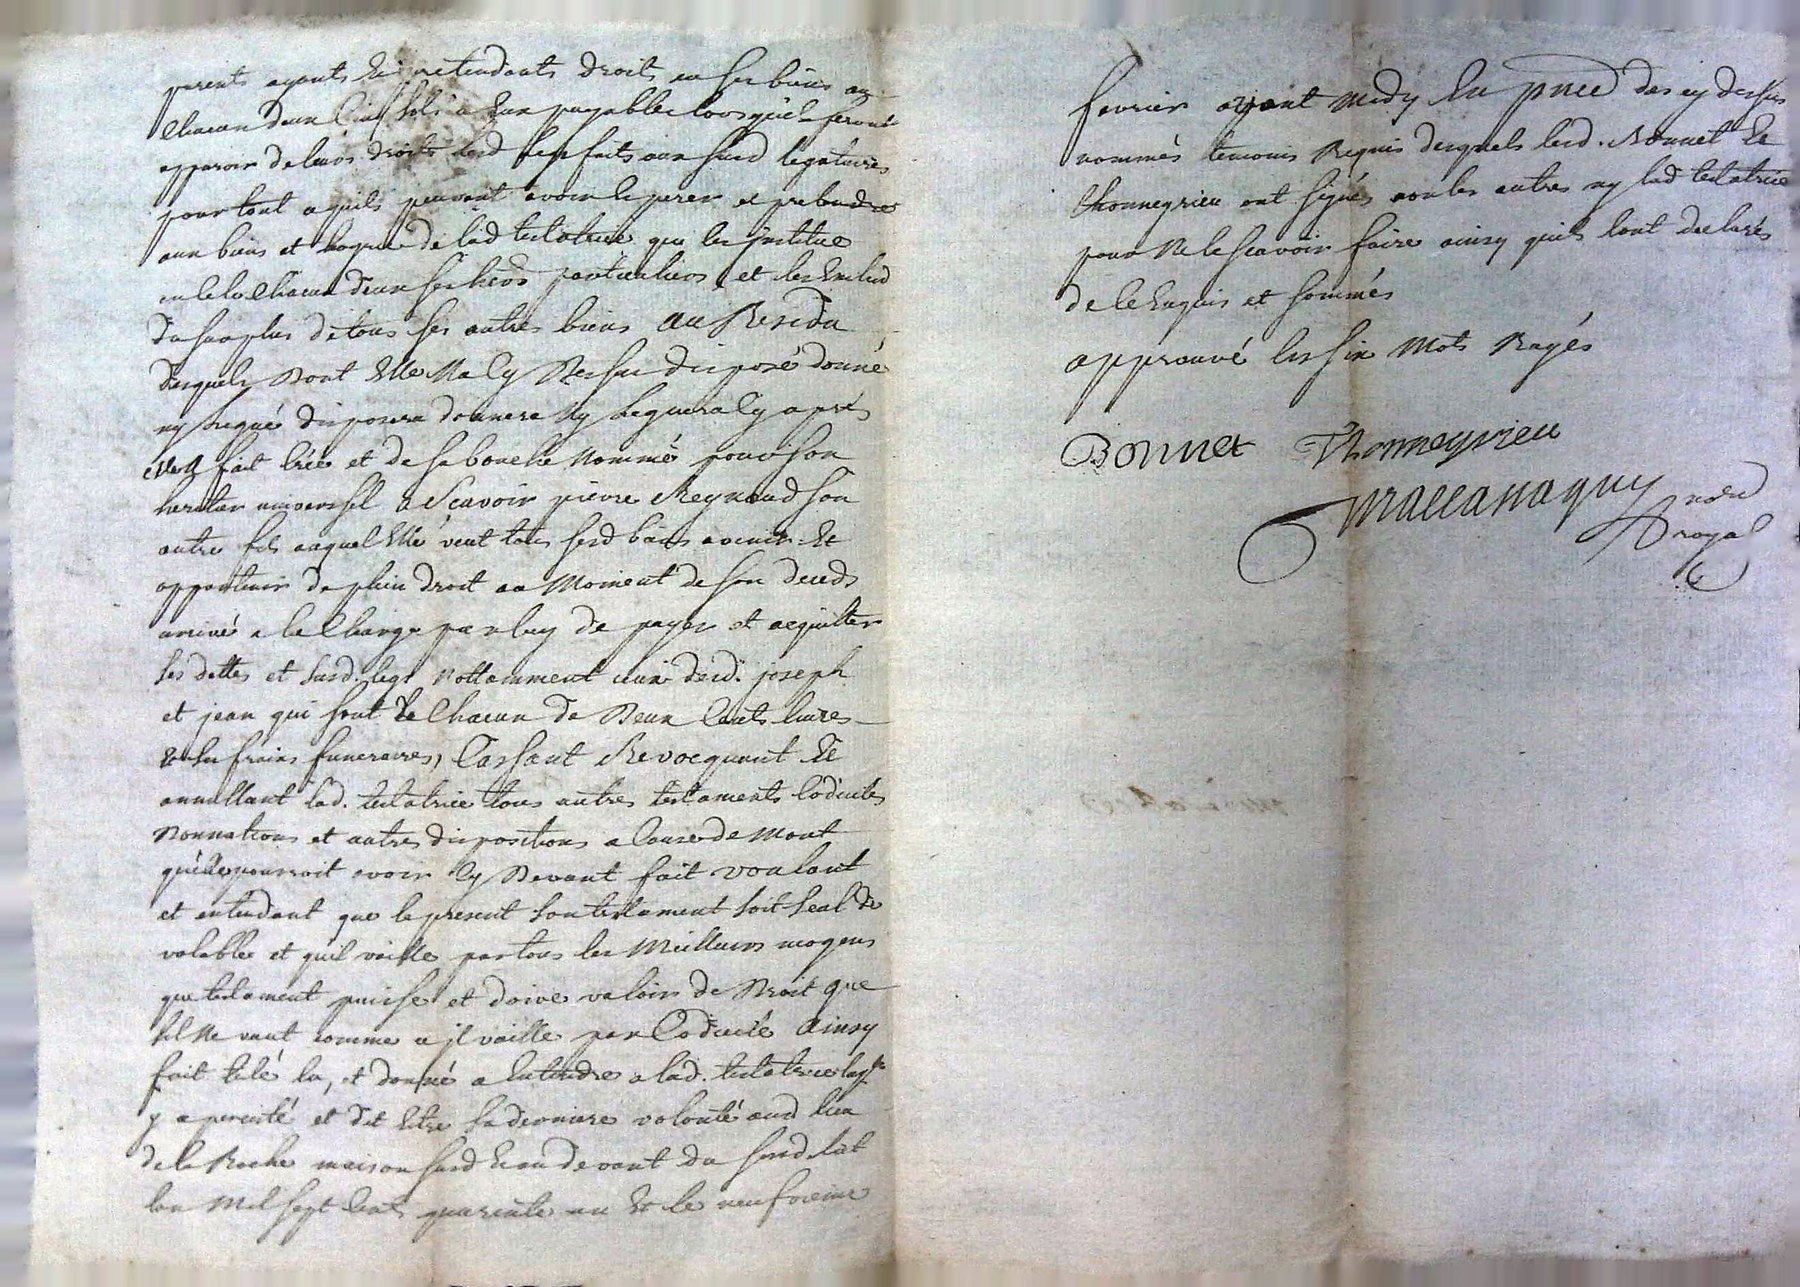 parents ayants et pretendants droits en ses biens au
Chacun deux Cinq sols a eux payables lorsquil feront
apparoir de leurs droits lesd legs faits aux susd legataires
pour tout a quils peuvent avoir esperer et prethendre
aux biens et hoyrie de lad testatrice qui les institue
en cela Chacun deux ses hers particuliers et les Exclud
du surplus de tous ses autres biens au Residu
desquels dont Elle Na Cy dessus disposé donné
ny legué disposera donnera Ny leguera Cy apres
fait créé et de sa bouche Nommé pour son
heritier universsel a Scavoir pierre Reynaud son
autre fils auquel Elle veut tous sesd biens avenir Et
appartenir de plein droit au Moment de son deceds
arrivé a la Charge par luy de payer et acquitter
ses dettes et susd. legs Nottamment ceux desd. joseph
et jean qui sont de Chacun de Deux Cents livres
et ses fraix funeraires, Cassant Revocquant Et
annullant lad. testatrice tous autres testaments Codicils
Donnations et autres dispositions a Cause de Mort
quelle pourroit avoir Cy Devant fait voulant
et entendant que le present son testament soit seul Et
valable et quil vaille par tous les Meilleurs moyens
que testament puisse et doive valoir de Droit que
sil Ne vaut comme a jl vaille par Codicile Ainsy
fait leu, et donné a Entendre a lad. testatrice
y a percisté et dit Etre sa derniere volonté aud lieu
de la Roche maison susd Et au devant du susd
lan Mil sept Cents quarente un Et le neufvieme
fevrier avant Midy En pnce des cy dessus
nommés temoins Requis desquels lesd. Bonnet Et
Thonneyrieu ont signés non les autres ny lad testatrice
pour Ne le scavoir faire ainsy quils lont declarés
de ce Enquis et sommés
approuvé les six Mots Rayés
Bonnet Thonneyrieu
Mallanaquy nore
royal